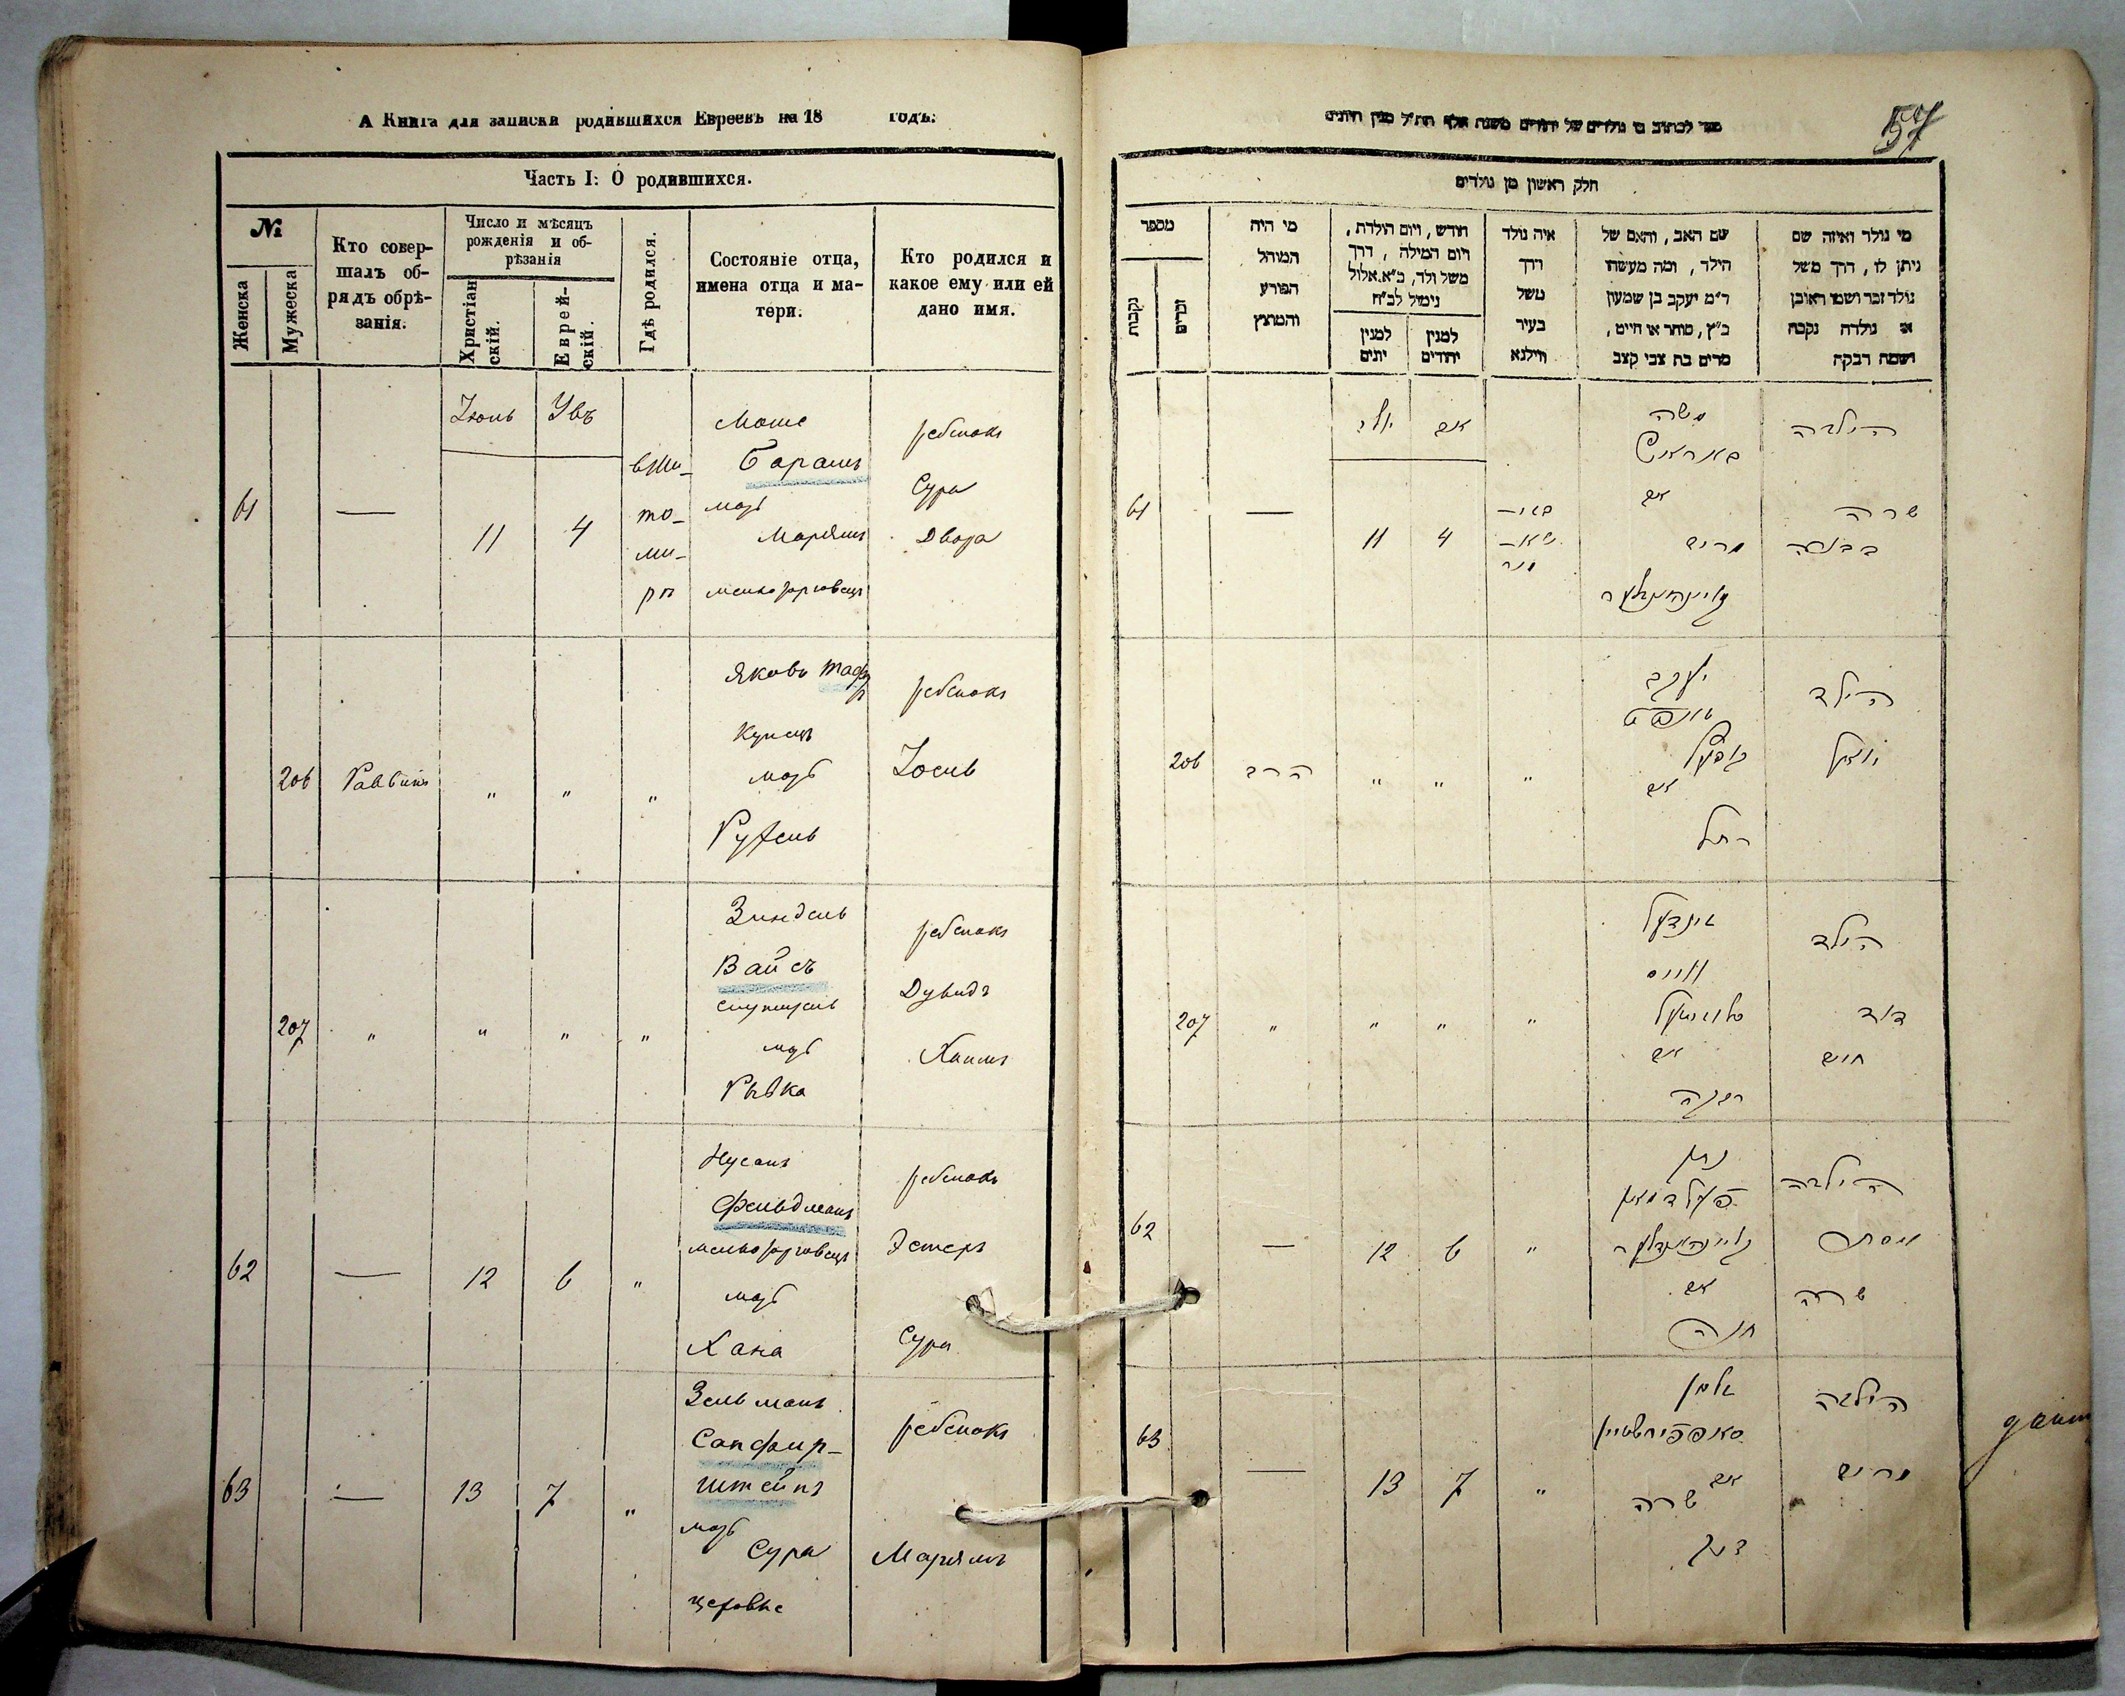 А Книга для записки родившихся Евреевъ на 18 годъ.
Часть I: О родившихся.
№
Женска
Мужеска
Кто совер-
шалъ об-
рядъ обрѣ-
занія.
Число и мѣсяцъ
рожденія и об-
рѣзанія
Христіан
скій.
Еврей-
скій.
Гдѣ родился.
Состояніе отца,
имена отца и ма-
тери.
Кто родился и
какое ему или ей
дано имя.
61
—
Іюль
11
Увъ
4
вжи-
то-
ми-
рп
Моше
Барашъ
мать
Марьямъ
ребенокъ
Сура
Двора
206
Раввинъ
"
"
"
Яковъ
купецъ
мать
Рухель
ребенокъ
Іосиъ
207
"
"
"
"
Зиндель
Вайсъ
мать
Рывка
ребенокъ
Дувидъ
Хаимъ
62
—
12
6
"
Нусанъ
Фельдманъ
мать
Хана
ребенокъ
Эстеръ
Сура
63
—
13
7
"
Зельманъ
Сапфир-
штейнъ
мать
Сура
ребенокъ
Марьямъ
57
חלק ראשון מן נולדים
מספר
נקבות
זכרים
מי היה
המוהל
הפורע
והמוצץ
חודש, ויום הולדת,
ויום המילה, דרך
משל ולד, כ״א.אלול
נימול לכ״ח
למנין
יונים
למנין
יהודים
איה נולד
דרך
משל
בעיר
ווילנא
שם האב, והאם של
הילד, ומה מעשהו
ר״מ יעקב בן שמעון
כ״ץ, סוחר או חייט,
מרים בת צבי קצב
מי נולד ואיזה שם
ניתן לו, דרך משל
נולד זכר ושמו ראובן
או נולדה נקבה
ושמה רבקה
61
—
11
4
משה
באראש
אם
מרים
הילדה
שרה
206
הרב
"
"
"
יעקב
אם
רחל
הילד
207
"
"
"
"
זינדעל
ווייס
אם
רבקה
הילד
דוד
חיים
62
—
12
6
"
נתן
פעלדמאן
אם
חנה
הילדה
אסתר
שרה
63
—
13
7
"
זלמן
סאפפירשטיין
אם
שרה
הילדה
מרים